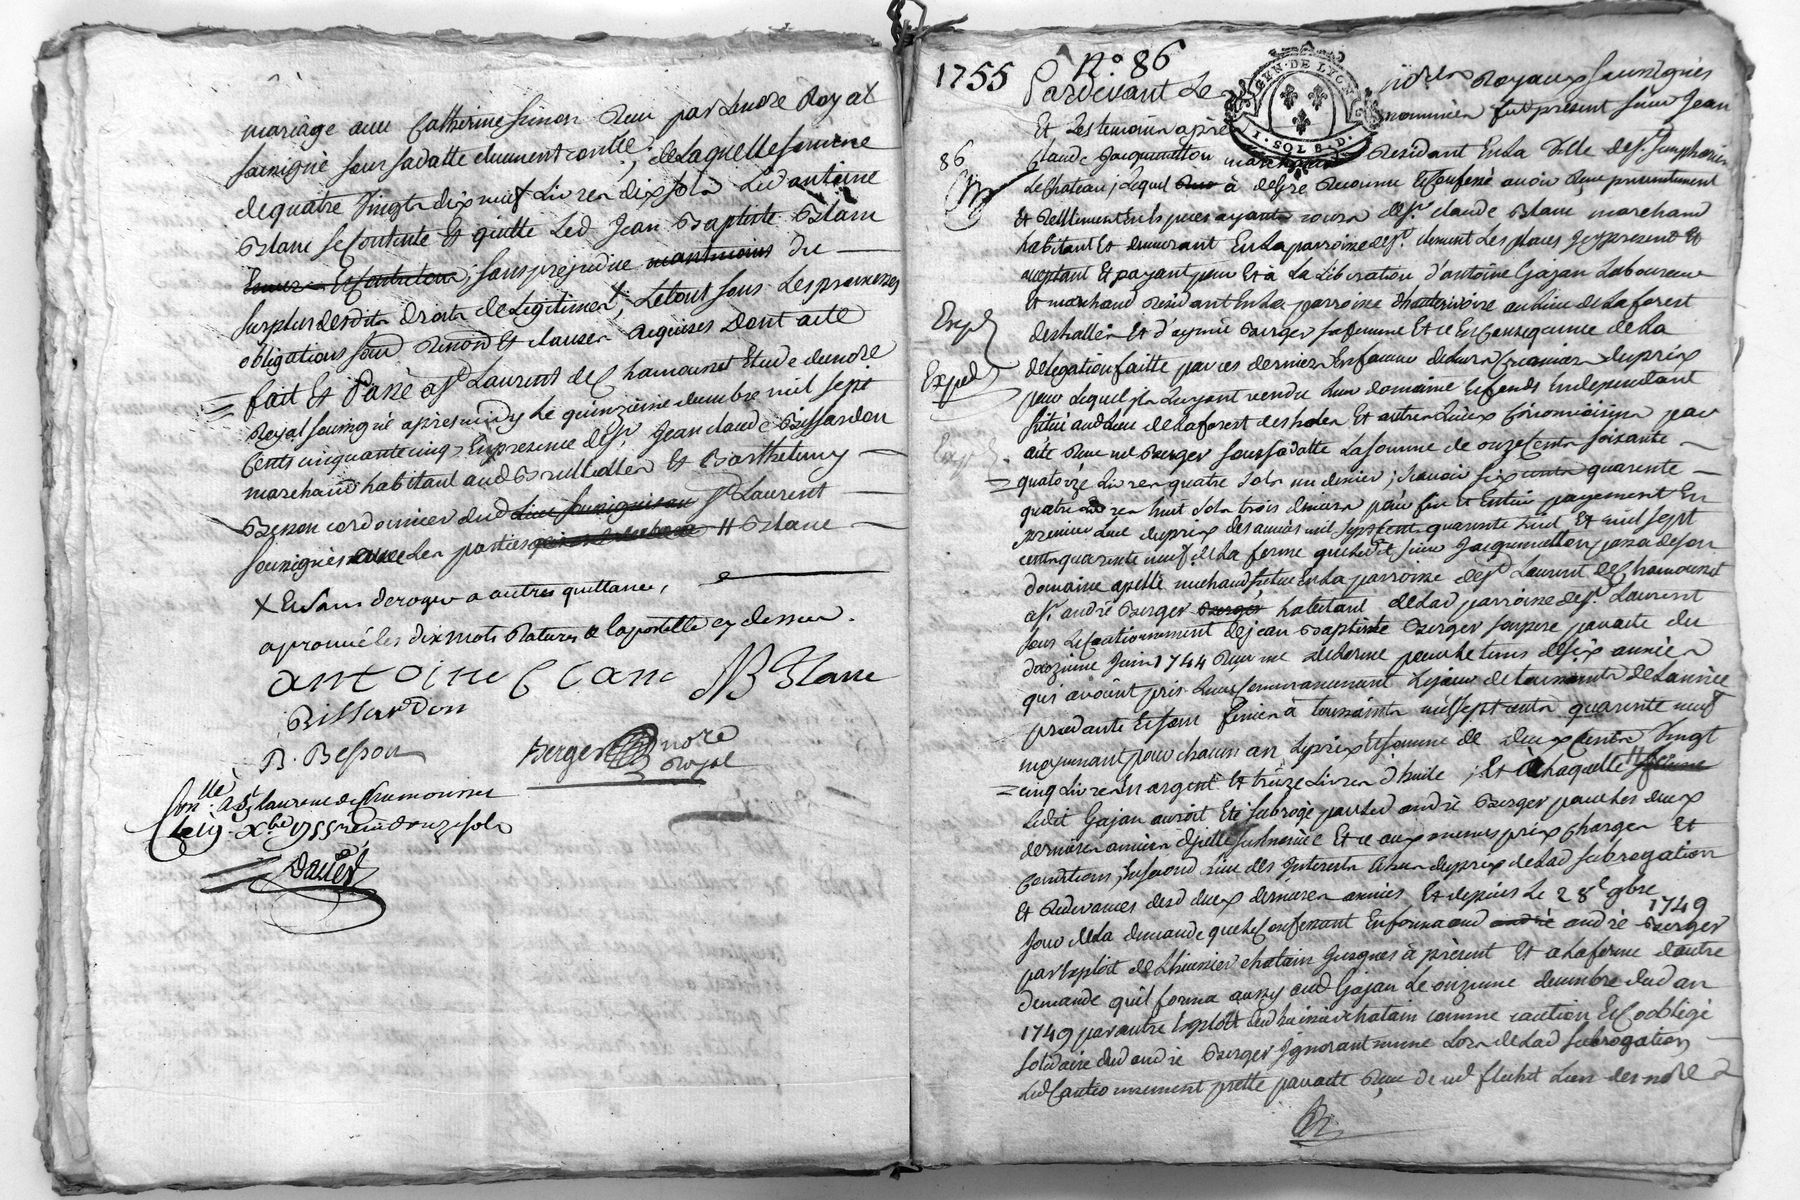 mariage avec Catherine Simon Reçu par Le nore Royal
soussigné sous sa datte duement contlé ; de Laquelle somme
de quatre vingts dix neuf Livres dix sols Led antoine
Blanc se Contente et quitte Led Jean Baptiste Blanc
sans prejudice du
surplus desdits droits de Legitimes X, Le tout sous Les promesses
obligations soumd Renond et clauses Requises Dont acte
fait Et Passé a St Laurent de Chamousset Etude du nore
Royal soussigné après midy Le quinzieme decembre mil sept
Cents cinquante cinq, En presence de Sr Jean claude Bissardon
marchand habitant aud et Barthelemy
Besson cordonnier dud Lieu soussignés au St Laurent
soussignés avec Les parties // Blanc
X Et sans deroger a autres quittances,
aprouvé les dix mots Ratures & l'apostille cy dessus.
antoine blanc JB Blanc
Bissardon
B. Besson
Berger nore Royal
Conllé a St laurent de Chamousset
Le 19 Xbre 1755 Reçu douze sols
Davet
1755 No. 86
GEN. DE LYON
1. SOL 8. D.
Pardevant Le Royaux soussignés
Et Les temoins après nommés fut present sieur Jean
86
Claude Jacquemetton marchand Residant En La Ville de St Simphorien
Le Chateau ; Lequel à de gré Reconnu Et Confessé avoir Reçu presentement
Et Rellement En Espèces ayants cours de Sr claude Blanc marchand
habitant Et demeurant En La parroisse de St. clement Les places Icy present Et
aceptant Et payant pour Et à La Liberation d'antoine Gajan Laboureur
Et marchand Residant En La parroisse d'hauterivoire au Lieu de La forest
Exped
des halles Et d'aymée Berger sa femme Et ce En Consequence de La
Exped
delegation faitte par ces derniers En faveur de Leurs Creanciers du prix
pour Lequel ils Luy ont vendu Leur domaine Et fonds En dependant
situé aud Lieu de La forest des halles Et autres Lieux Circonvoisins par
acte Reçu me Berger sous sa datte La somme de onze cents soixante
quatorze Livres quatre sols un denier ; sçavoir six cents quarente
quatre Livres huit sols trois deniers pour fin Et Entier payement En
premier Lieu du prix des années mil sept cent quarente huit Et mil sept
cents quarente neuf de La ferme que Led sieur Jacquemetton passa de son
domaine apellé michaud situé En La parroisse de St Laurent de Chamousset
a Sr. andré Berger habitant de Lad parroisse de St. Laurent
sous Le Cautionnement de jean Baptiste Berger son pere par acte du
douzieme Juin 1744 Reçu me Delorme pour Le tems de six années
qui avoint pris Leur Commencement Le jour de toussaints de L'année
precedente Et sont finies à toussaints mil sept cents quarente neuf
moyennant pour chacun an Le prix Et somme de deux Cents vingt
cinq Livres En argent Et treize Livres d'huile ; Et à Laquelle // ferme
Ledit Gajan auroit Eté subrogé par Led andré Berger pour Les deux
dernieres années d'jcelle sus Enoncées Et ce aux memes prix Charges Et
Conditions ; En second Lieu des Interets dud prix de Lad subrogation
Et Redevances desd deux dernieres années Et depuis Le 28e 9bre 1749
Jour de La demande que Le Confessant En forma aud andré Berger
par Exploit de L'huissier chatain Jusques à présent Et a La forme d'autre
demande qu'il forma aussy aud Gajan Le onzieme decembre dud an
1749 par autre Exploit dud huissier chatain comme caution Et Coobligé
solidaire dud andré Berger Ignorant meme Lors de Lad subrogation
Led Cautionnement pretté par acte Reçu de me flechet L'un des nores